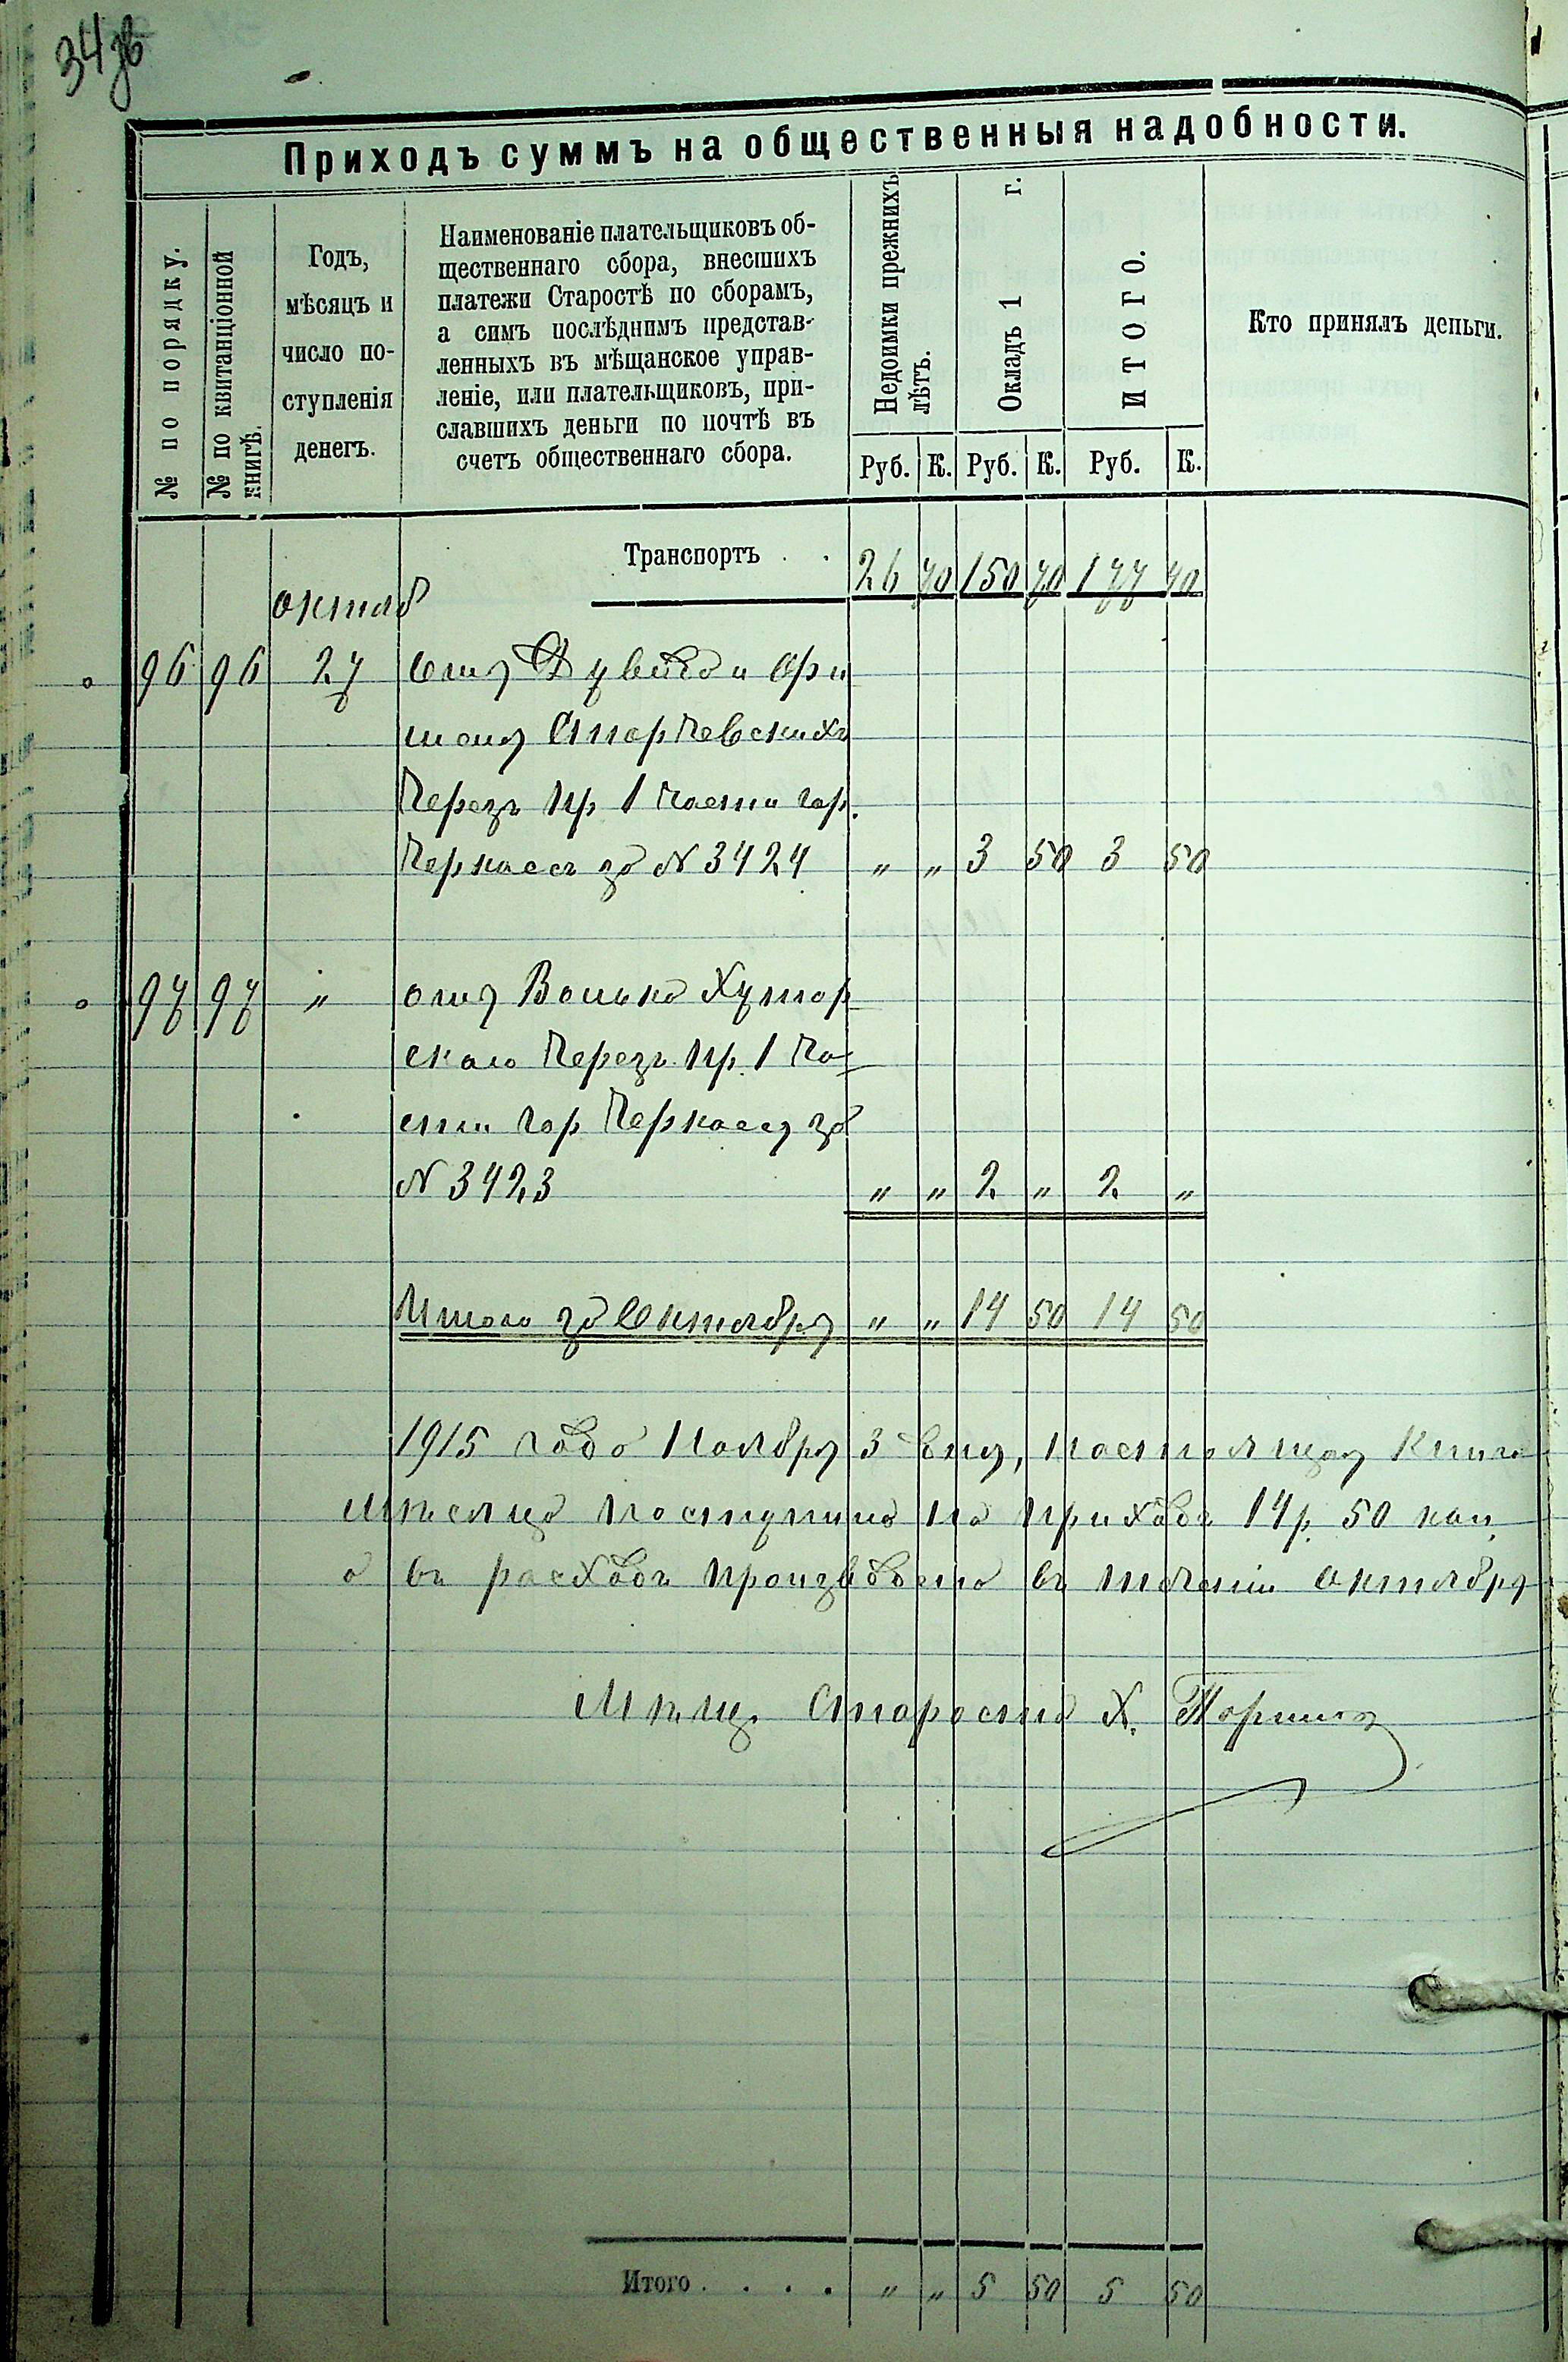 34 об
Приходъ суммъ на общественныя надобности.
№ по порядку.
№ по квитанціонной книгѣ.
Годъ,
мѣсяцъ и
число по-
ступленія
денегъ.
Наименованіе плательщиковъ об-
щественнаго сбора, внесшихъ
платежи Старостѣ по сборамъ,
а симъ послѣднимъ представ-
ленныхъ въ мѣщанское управ-
леніе, или плательщиковъ, при-
славшихъ деньги по почтѣ въ
счетъ общественнаго сбора.
Недоимки прежнихъ лѣтъ.
Окладъ 1 г.
ИТОГО.
Кто принялъ деньги.
Руб. К. Руб. К. Руб. К.
Транспортъ . . 26 70 150 70 177 40
октяб
96 96 27 Отъ и
Старчевскихъ
Черезъ Пр 1 части гор.
Черкассъ за № 3424 " " 3 50 3 50
97 97 " отъ Хутор
скаго Черезъ Пр. 1 Ча
сти гор Черкассъ за
№ 3423 " " 2 " 2 "
Итого за Октябрь " " 14 50 14 50
1915 года Ноября 3 дня,
мѣсяца поступило на приходъ 14 р. 50 коп
а въ расходъ произведено въ теченіи октября
Мѣщ. Староста Х.
Итого . . . . " " 5 50 5 50